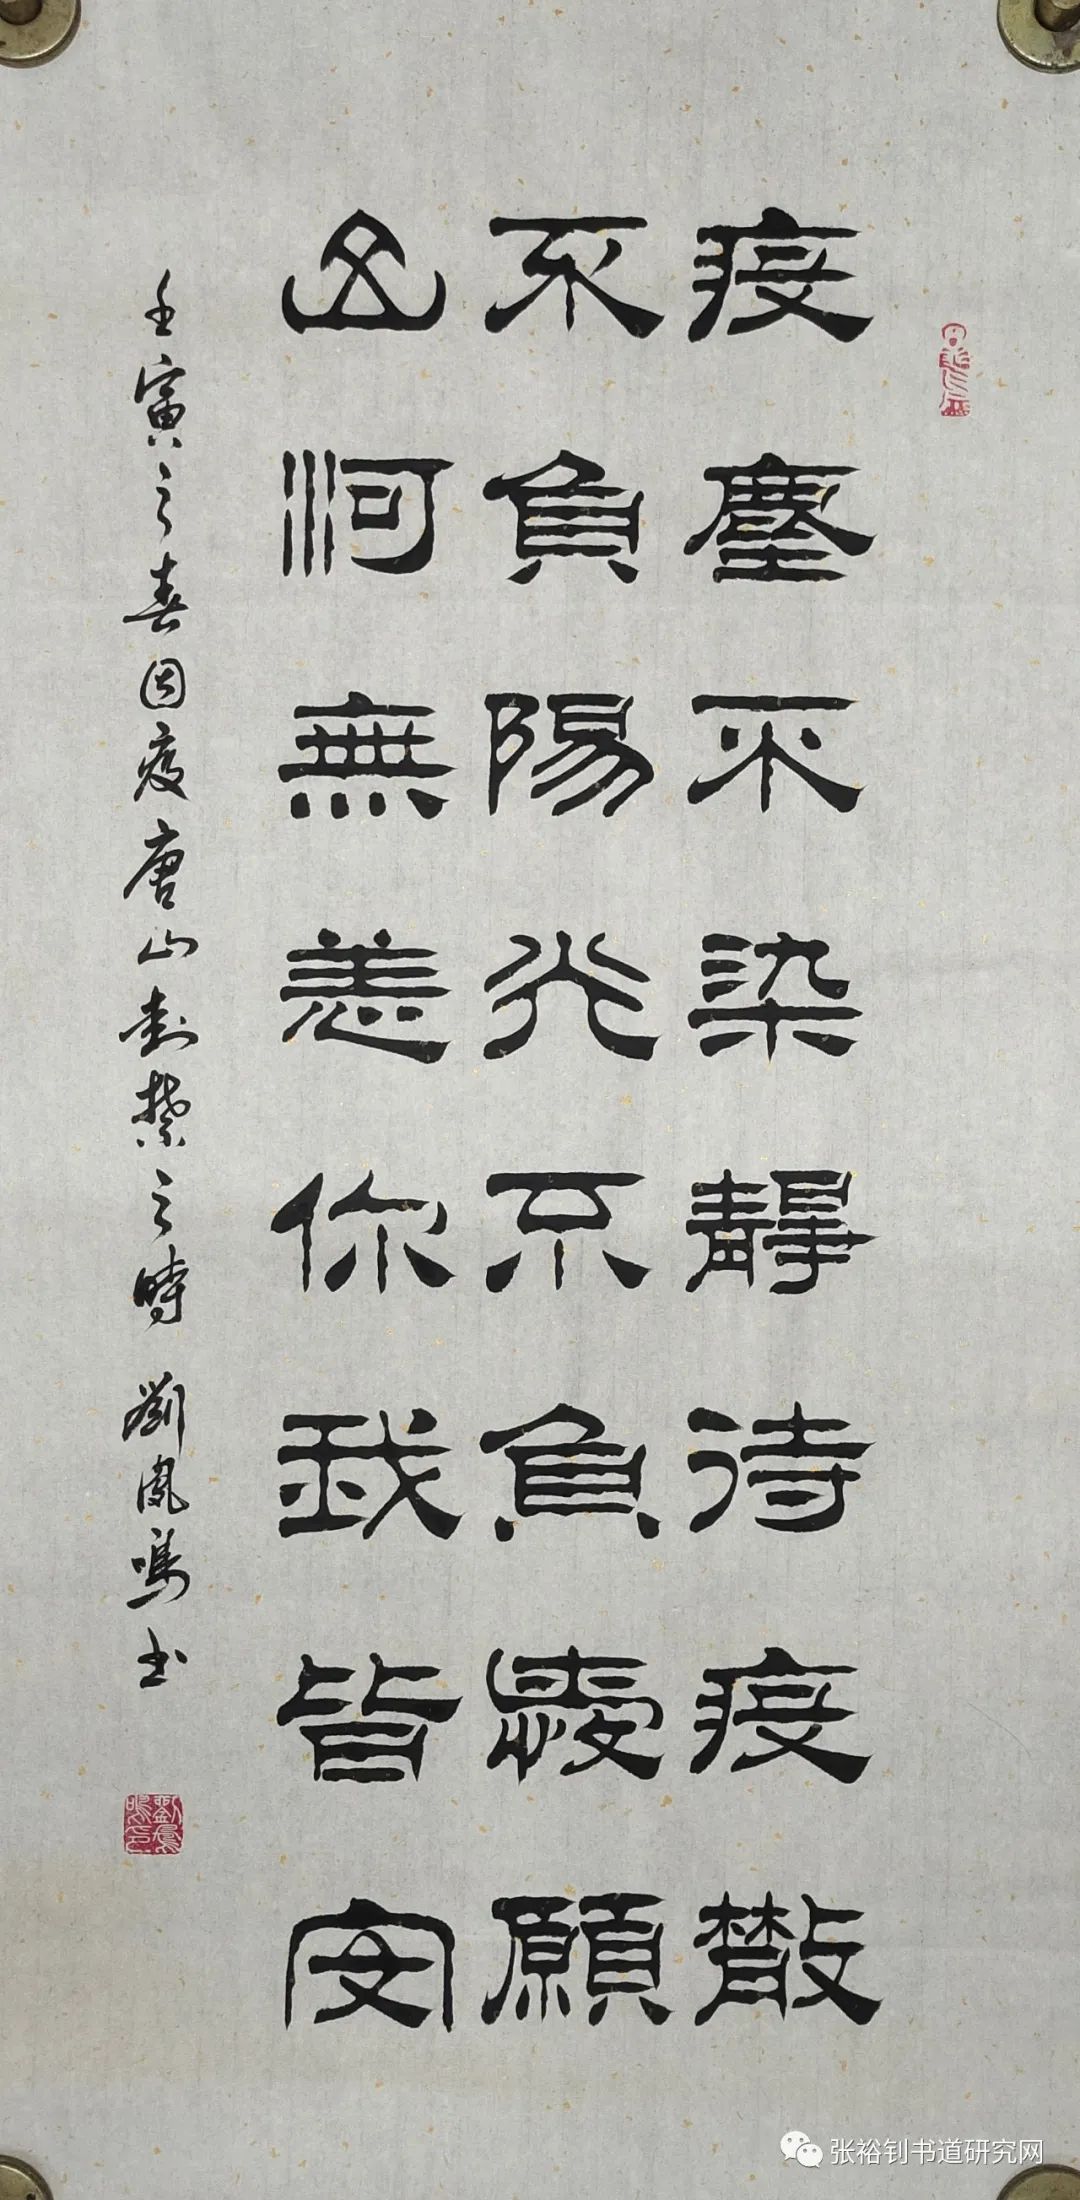 疫塵不染靜待疫散
不負陽光不負愛願
山河無恙你我皆安
壬寅之春因疫唐山封禁之時 劉鳳鳴书
劉鳳鳴印
张裕钊书道研究网